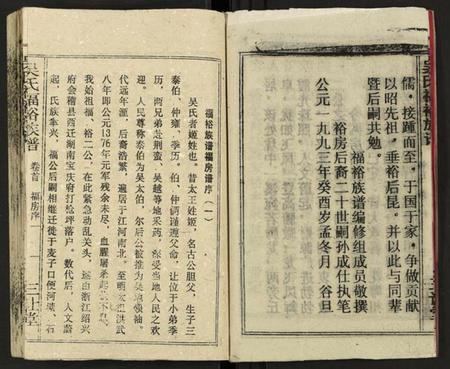 儒，接踵而至，于国于家，争做贡献
以昭先祖，垂裕后昆。并以此与同辈
暨后嗣共勉。
福裕族谱编修组成员敬撰
裕房后裔二十世嗣孙成仕执笔
公元一九九三年癸酉岁孟冬月 谷旦
福裕族谱福房谱序（一）
吴氏者姬姓也，昔太王姓姬，名古公亶父，生子三
泰伯、仲雍、季历。伯、仲俩谨遵父命，让位于小弟季
历，两兄弟赴荆蛮、吴越等地采药，深受当地人民之欢
迎。人民尊称泰伯为吴太伯，尔后公被推为吴地领袖。
代远年湮，后裔浩繁，遍居于江河南北。至明太祖洪武
八年即公元1376年元军残余未尽，血腥屠杀
我始祖福、裕二公，在此紧急动乱关头，逐由浙江绍兴
府会稽县酒迁湖南宝庆府打怆坪落户。数代后，人文蔚
起，氏族隼兴，福公后嗣相继迁徙于麦子口便河粱、石
吴氏福裕族谱
卷首 福房序
一
三让堂